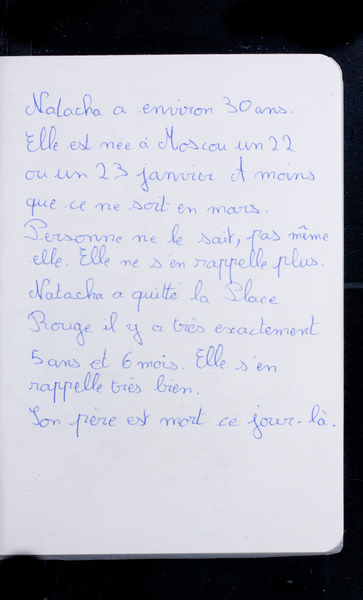 Natacha a environ 30 ans.
Elle est née à Moscou un 22
ou un 23 janvier. A moins
que ce ne soit en mars.
Personne ne le sait, pas même
elle. Elle ne s'en rappelle plus.
Natacha a quitté la Place
Rouge il y a très exactement
5 ans et 6 mois. Elle s'en
rappelle très bien.
Son père est mort ce jour-là.